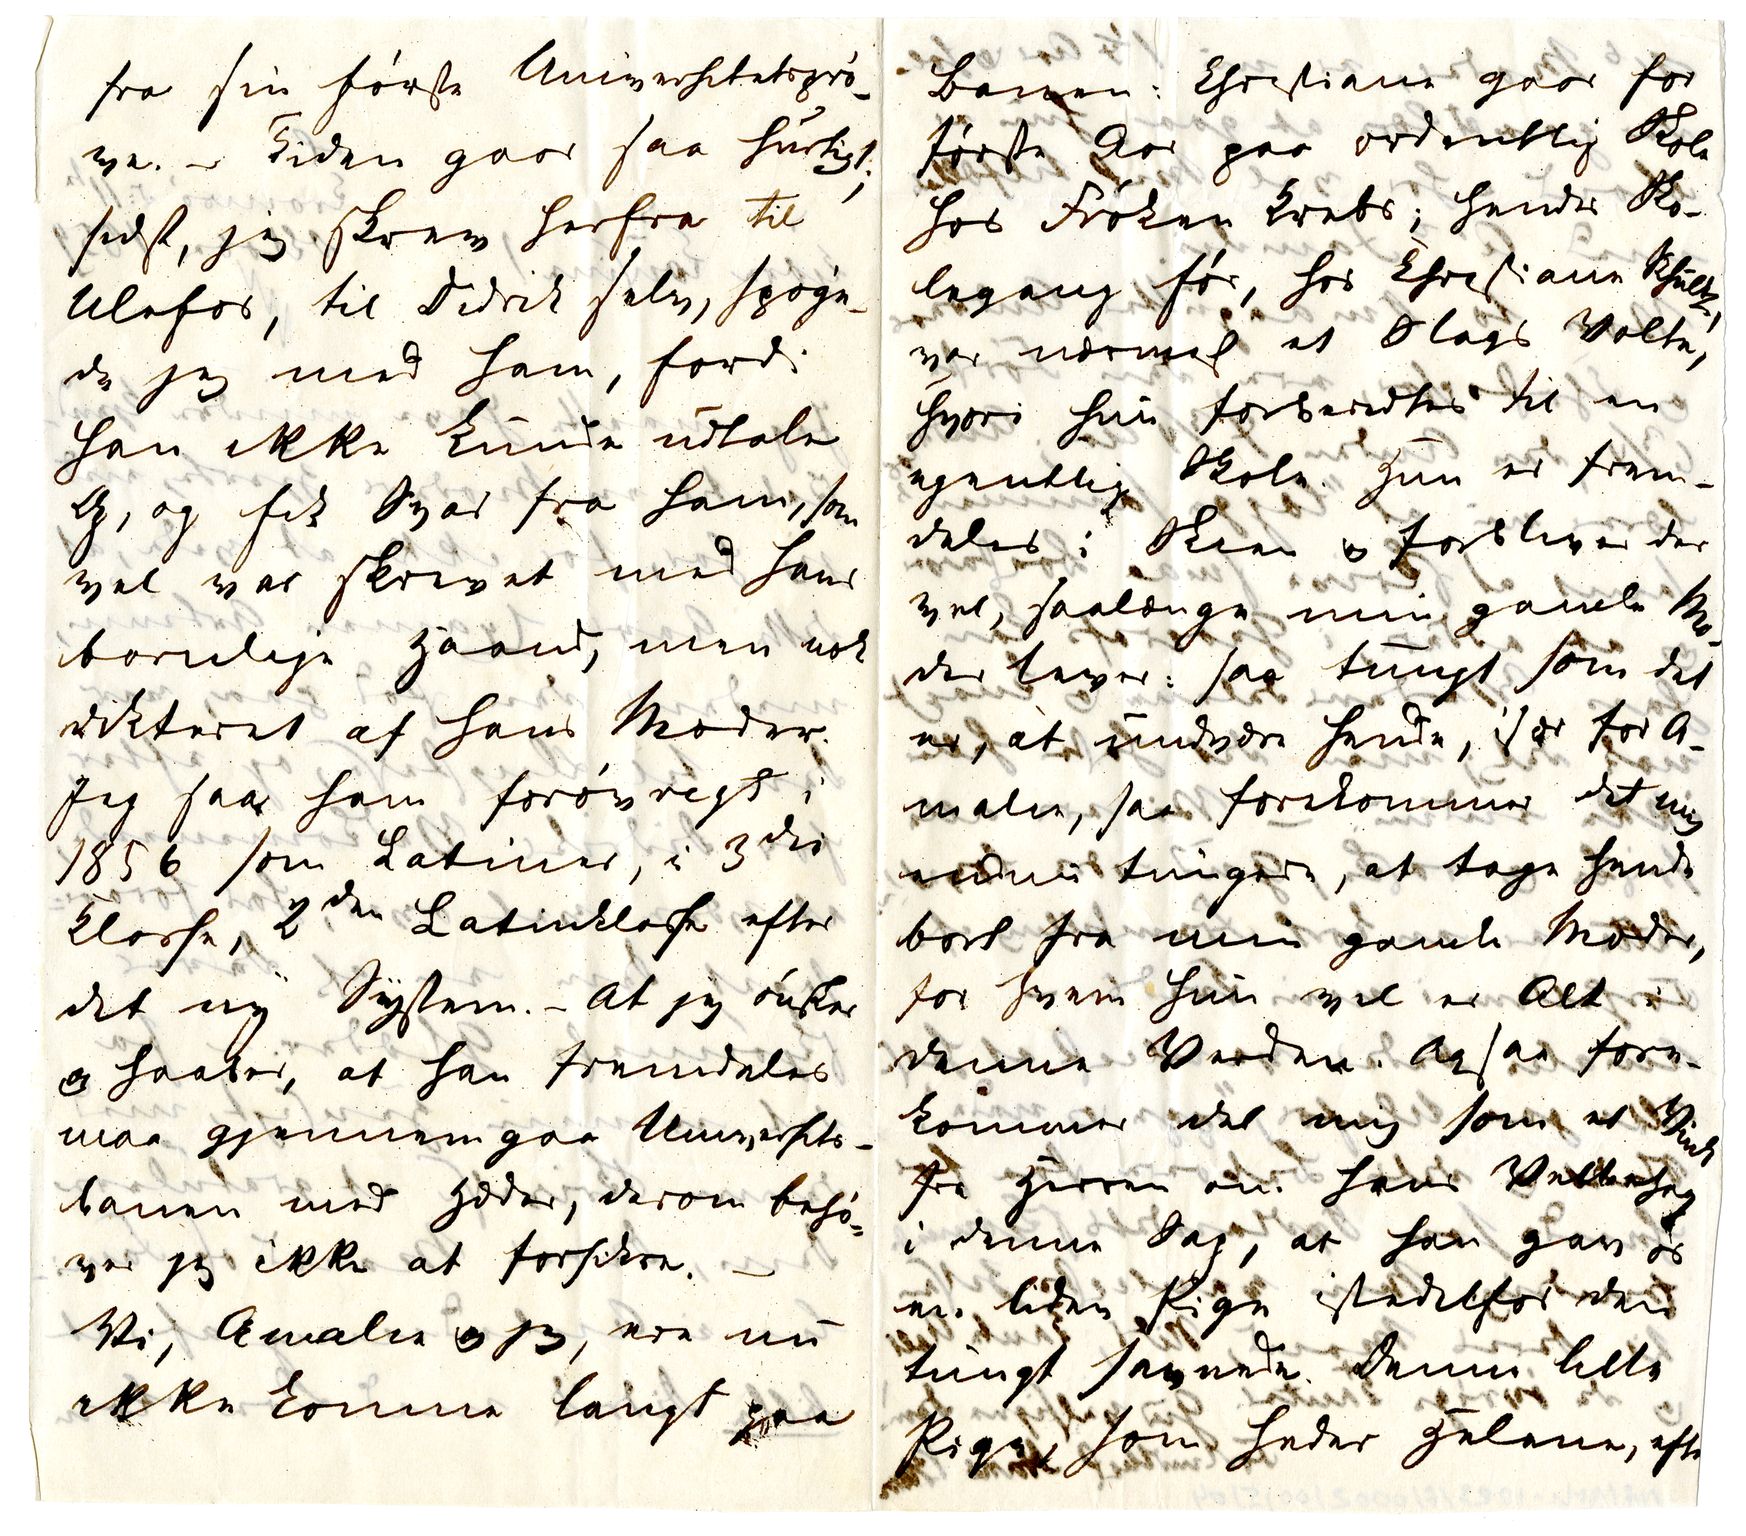 fra sin første Universitetsprø-
ve. – Tiden gaar saa hurtigt;
sidst, jeg skrev herfra til
Ulefos, til Didrik selv, spøge-
de jeg med ham, fordi
han ikke kunde udtale
G, og fik Svar fra ham, som
vel var skrevet med hans
barnlige Haand, men nok
dikteret af hans Moder.
Jeg saae ham forøvrigt i
1856 som Latiner, i 3die
Klasse, 2den Latinklasse efter
det ny System. – At jeg ønsker
og haaber, at han fremdeles
maa gjennemgaa Universitets-
banen med Hæder, derom behø-
ver jeg ikke at forsikre. –
Vi, Amalie og jeg, ere nu
ikke komne langt paa
Banen: Christiane gaar for
første Aar paa ordentlig Skole
hos Frøken Krebs; hendes Sko-
legang før, hos Christiane Schultz,
var nærmest et Slags Volte,
hvori hun forberedtes til en
egentlig Skole. Hun er frem-
deles i Skien og forbliver der
vel, saalænge min gamle Mo-
der lever: saa tungt som det
er, at undvære hende, især for A-
malie, saa forekommer det mig
endnu tungere, at tage hende
bort fra min gamle Moder,
for hvem hun vel er Alt i
denne Verden. Ogsaa fore-
kommer det mig som et Vink
fra Herren om hans Velbehag
i denne Sag, at han gav os
en liden Pige istedetfor den
tungt savnede. Denne lille
Pige, som heder Helene, efter